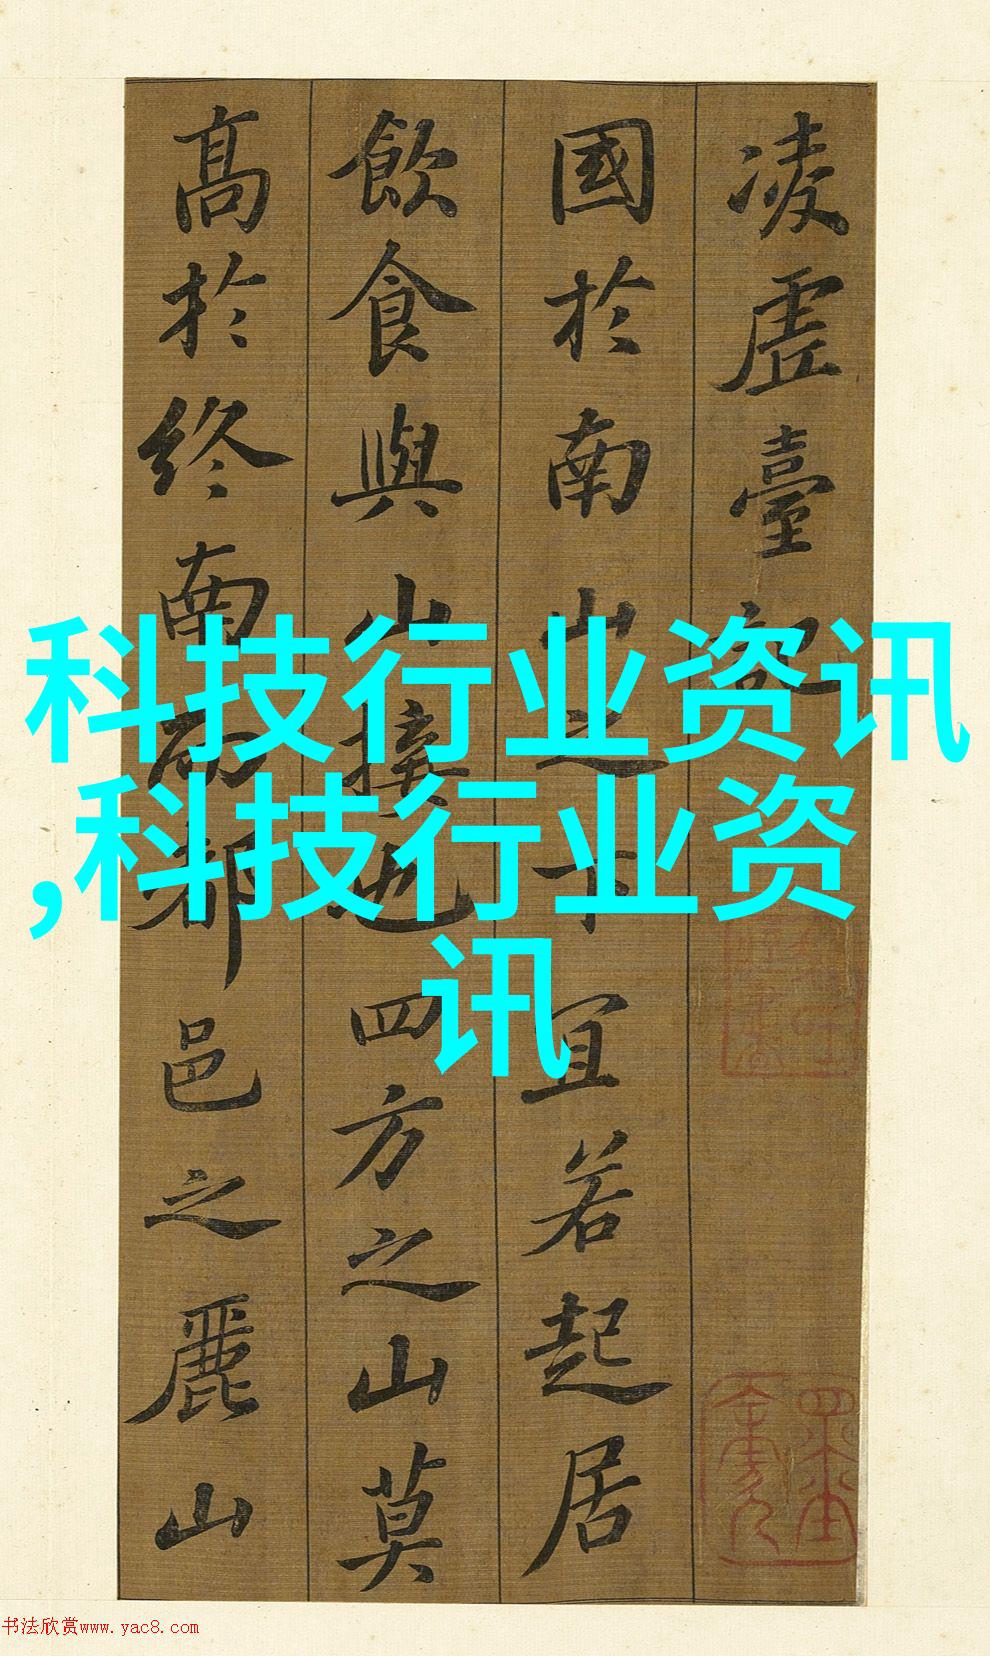 凌虚臺記
國於南山之下宜若起居
飲食與山接也四方之山莫
高於終南而都邑之麗山
科技行业资讯
,科技行业资
讯
书法欣赏www.yac8.com